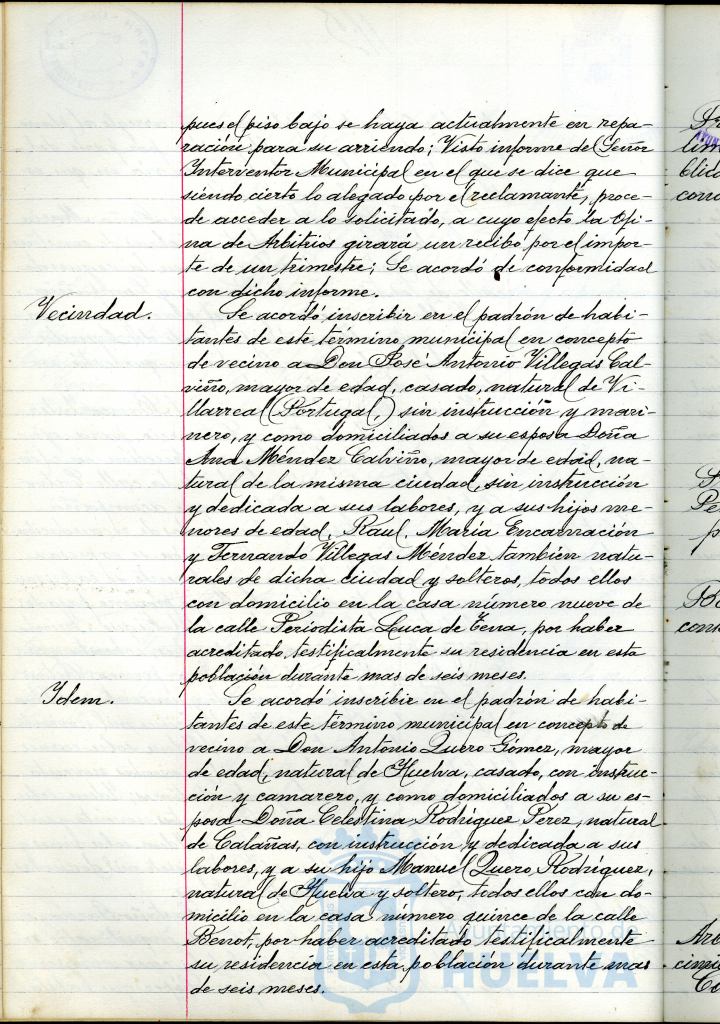 pues el piso bajo se haya actualmente en repa-
ración para su arriendo; Visto informe del Señor
Interventor Municipal en el que se dice que
siendo cierto lo alegado por el reclamante, proce-
de acceder a lo solicitado, a cuyo efecto la Ofi-
na de Arbitrios girará un recibo por el impor-
te de un trimestre; Se acordó de conformidad
con dicho informe.
Vecindad.
Se acordó inscribir en el padrón de habi-
tantes de este término municipal en concepto
de vecino a Don José Antonio Villegas Cal-
viño, mayor de edad, casado, natural de Vi-
llarreal (Portugal,) sin instrucción, y mari-
nero, y como domiciliados a su esposa Doña
Ana Méndez Calviño, mayor de edad, na-
tural de la misma ciudad, sin instrucción
y dedicada a sus labores, y a sus hijos me-
nores de edad, Raul, María Encarnación
y Fernando Villegas Méndez también natu-
rales de dicha ciudad y solteros, todos ellos
con domicilio en la casa número nueve de
la calle Periodista Luca de Tena, por haber
acreditado, testificalmente su residencia en esta
población durante mas de seis meses.
Idem.
Se acordó inscribir en el padrón de habi-
tantes de este término municipal en concepto de
vecino a Don Antonio Quero Gómez, mayor
de edad, natural de Huelva, casado, con instruc-
ción y camarero, y como domiciliados a su es-
posa Doña Celestina Rodríguez Perez, natural
de Calañas, con instrucción y dedicada a sus
labores, y a su hijo Manuel Quero Rodríguez,
natural de Huelva y soltero, todos ellos con do-
micilio en la casa número quince de la calle
Benot, por haber acreditado testificalmente
su residencia en esta población durante mas
de seis meses.
Ayuntamiento de
HUELVA